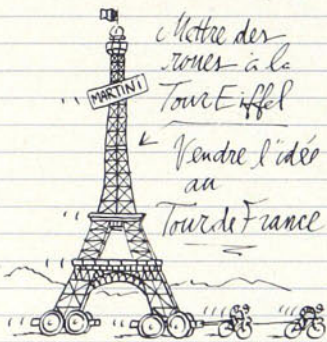 Mettre des
roues à la
Tour Eiffel
MARTINI
Vendre l'idée
au
Tour de France